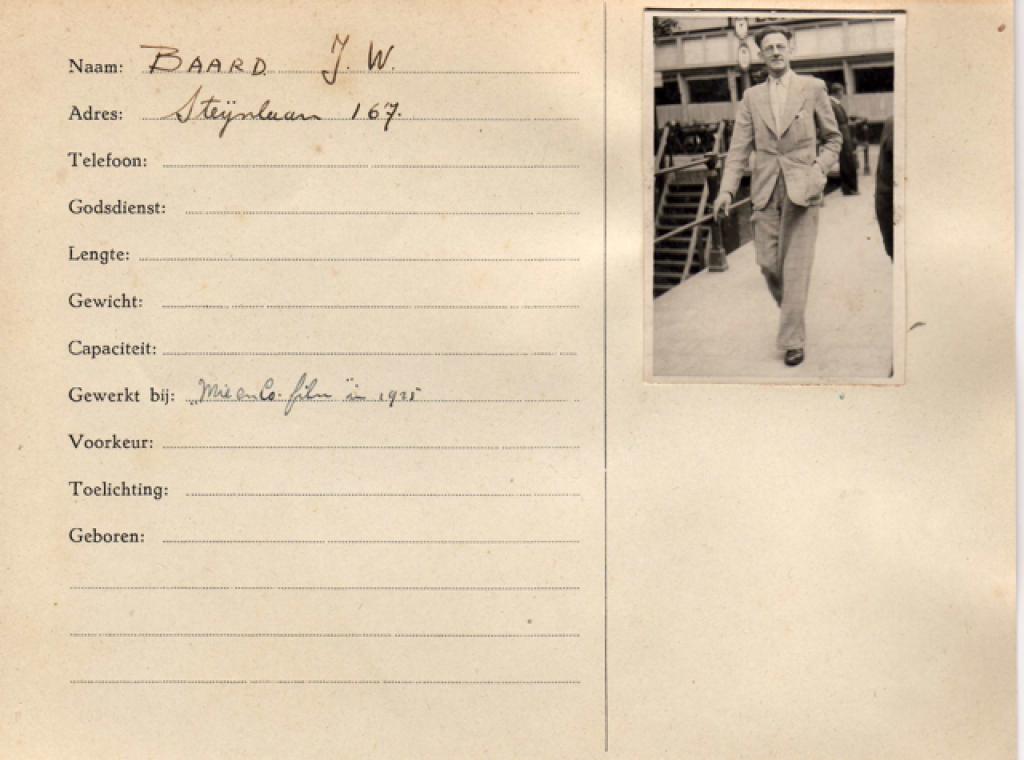 Naam: BAARD J. W.
Adres: Steijnlaan 167.
Telefoon:
Godsdienst:
Lengte:
Gewicht:
Capaciteit:
Gewerkt bij: film" in
Voorkeur:
Toelichting:
Geboren: